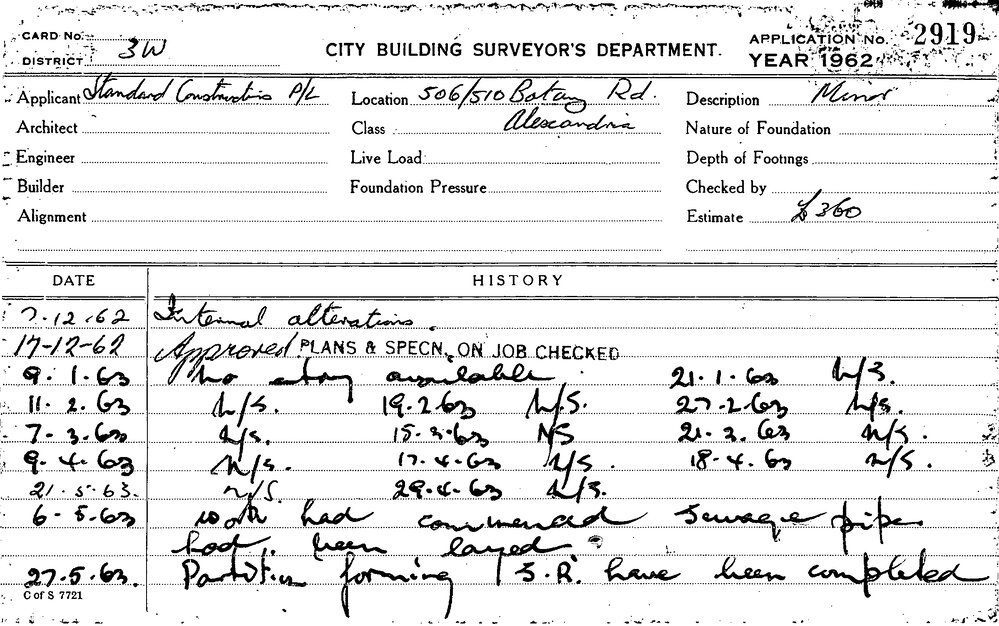 CARD No.
DISTRICT 3W
CITY BUILDING SURVEYOR'S DEPARTMENT.
APPLICATION No. 2919
YEAR 1962
Applicant Standard Constructions P/L Location 506/510 Botany Rd. Description Minor
Architect Class Alexandria Nature of Foundation
Engineer Live Load Depth of Footings
Builder Foundation Pressure Checked by
Alignment Estimate £360
DATE HISTORY
7.12.62 Internal alterations.
17-12-62 Approved PLANS & SPECN. ON JOB CHECKED
9.1.63 No entry available 21.1.63 N/S.
11.2.63 N/S. 19.2.63 N/S. 27.2.63 N/S.
7.3.63 N/S. 15.3.63 NS 21.3.63 N/S.
9.4.63 N/S. 17.4.63 N/S. 18.4.63 N/S.
21.5.63. N/S. 29.4.63 N/S.
6-5.63 work had commenced sewage pipe
had been layed
27.5.63. Partition forming S.R. have been completed
C of S 7721